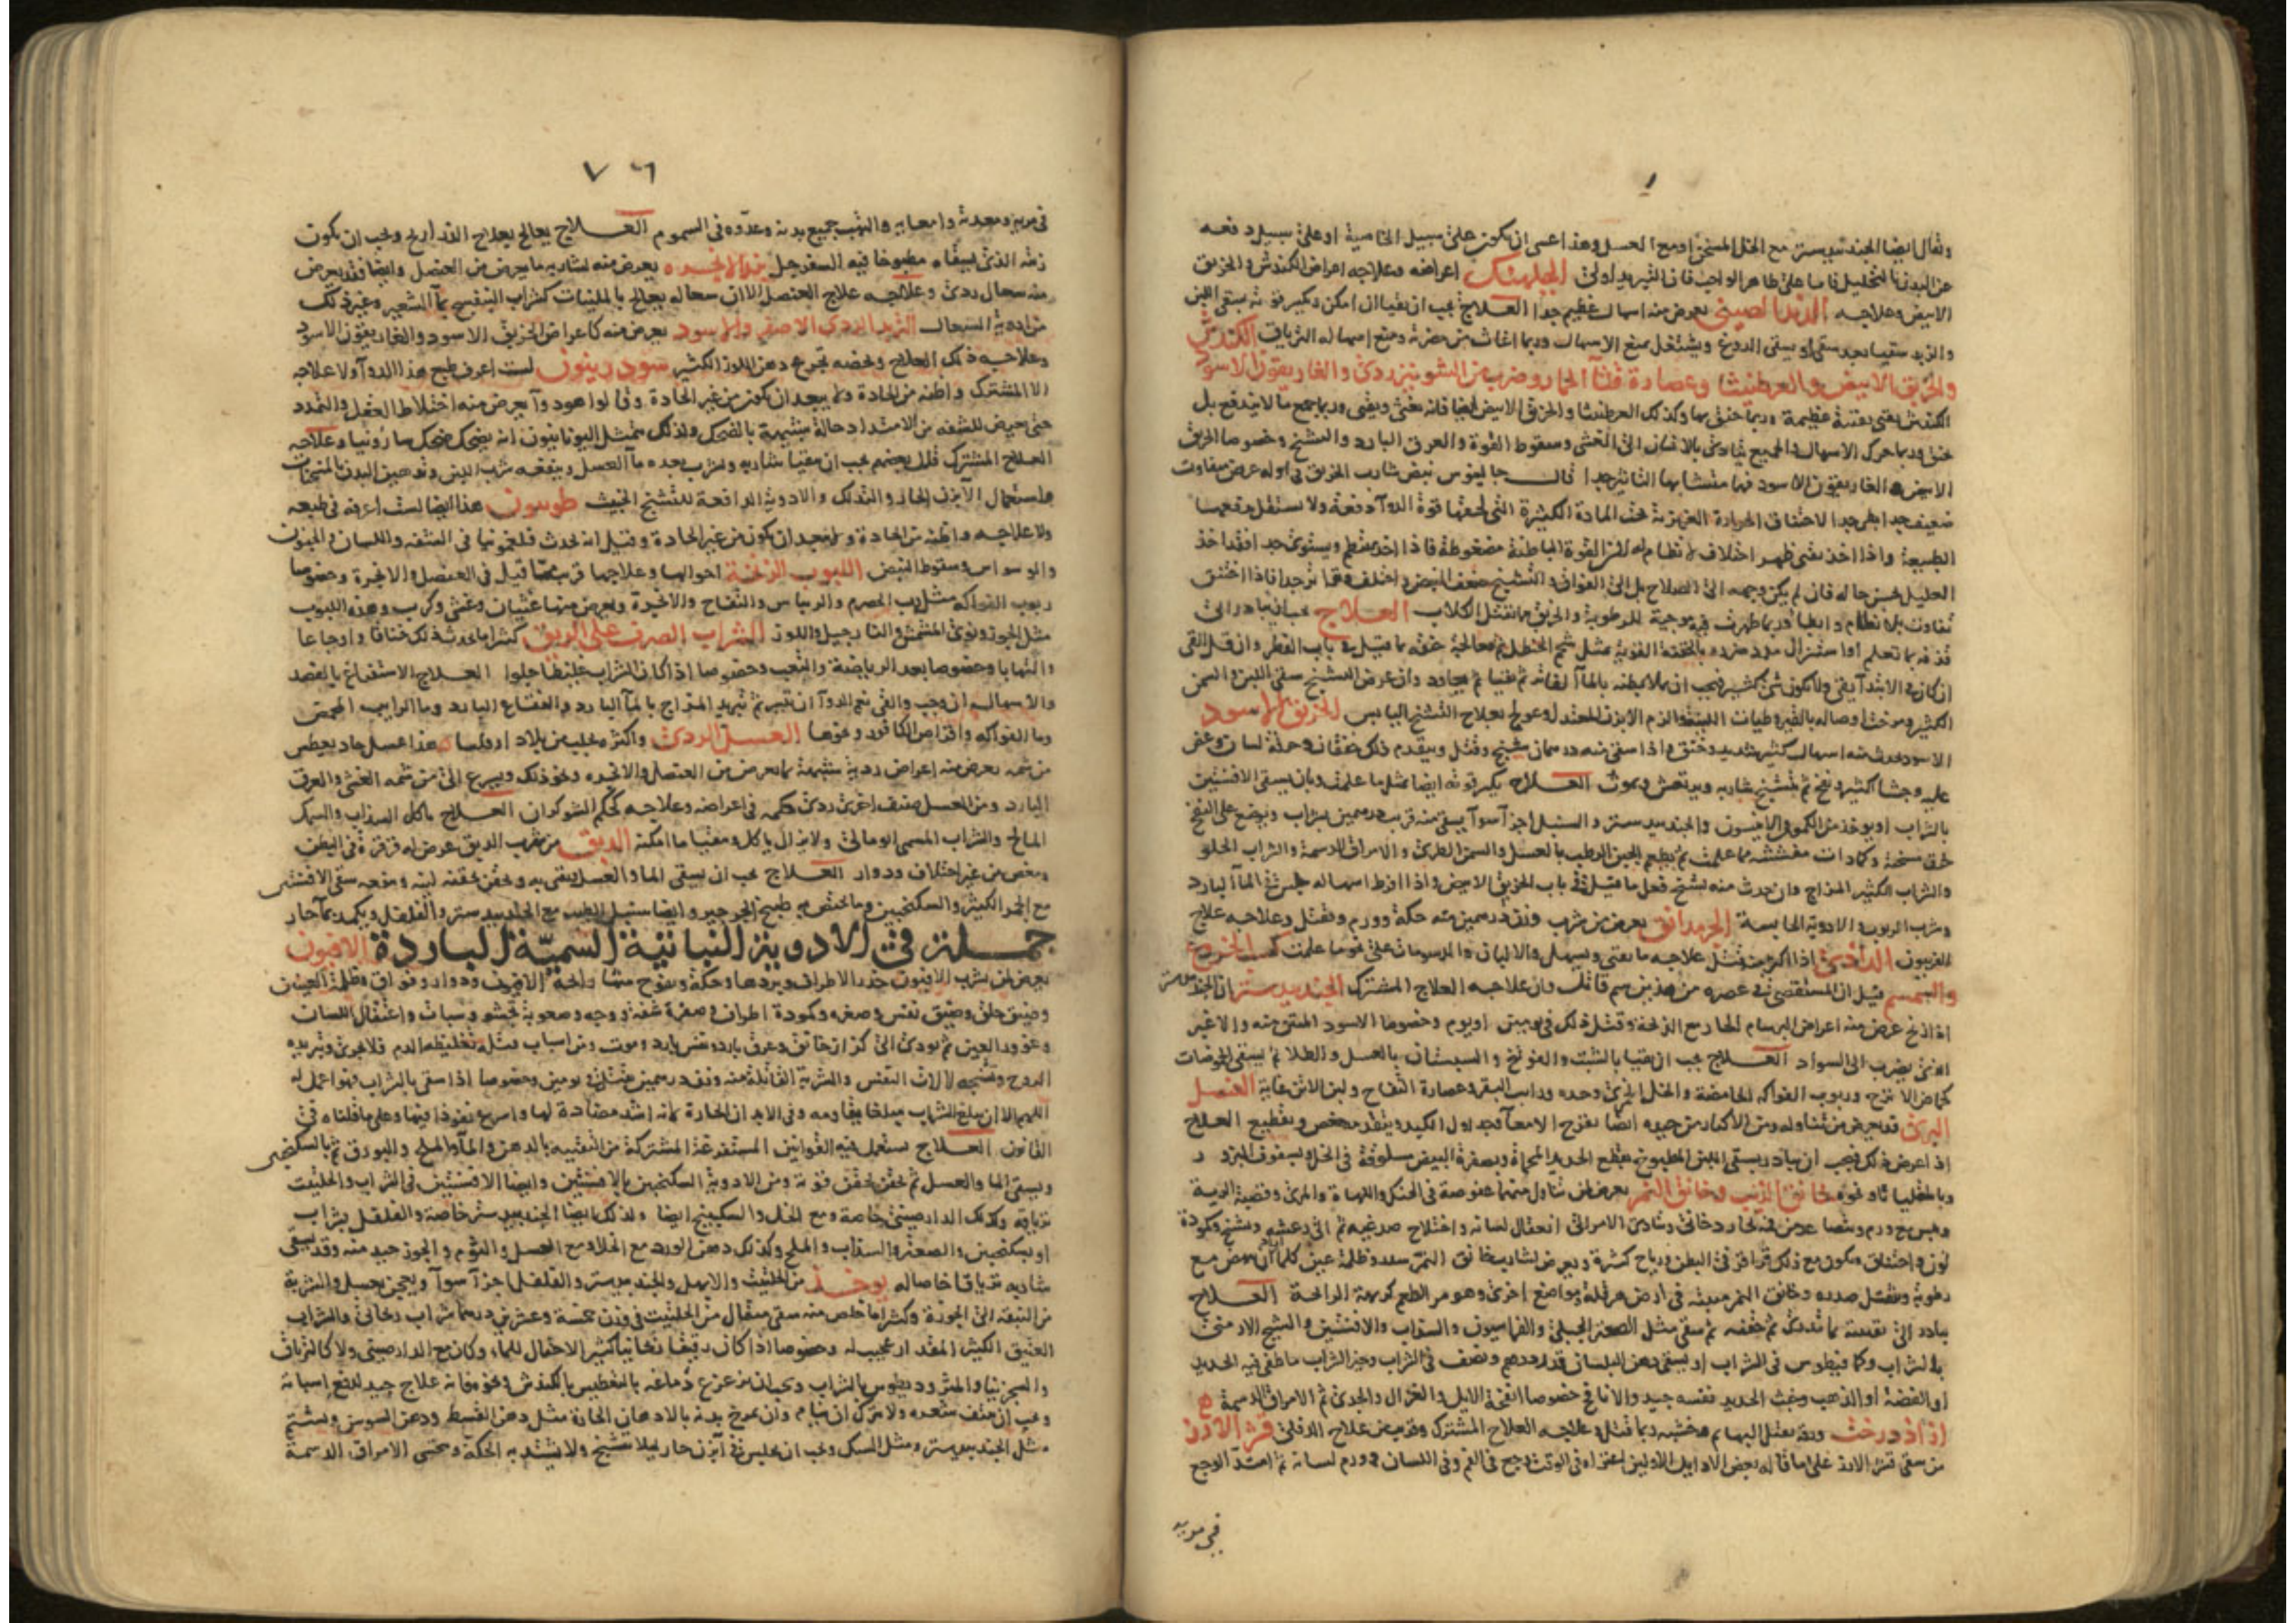 وقال ايضا الجندبيدستر مع الخل المسخن او مع العسل وهذا عسى ان يكون على سبيل الخاصية او على سبيل دفعه
عن البدن بالتحليل فاما على ظاهر الواجب فان التبريد اولى الجبلهنك اعراضه وعلاجه اعراض الكندش والخربق
الابيض وعلاجه الدند الصيني يعرض منه اسهال عظيم جدا العلاج يجب ان يقيا ان امكن وتكسر قوته بسقي اللبن
والزبد سقيا بعد سقي او يسقى الدوغ ويشتغل بمنع الاسهال وربما اغاث من مضرته ومنع اسهاله الترياق الكندش
والخربق الابيض والعرطنيثا وعصارة قثا الحمار وضرب من الشونيز ردي والغاريقون الاسود
الكندش يغثي بقوة عظيمة وربما خنق بها وكذلك العرطنيثا والخربق الابيض ايضا فانه يغثي ويقي وربما جمع ما لا يندفع بل
خنق وربما حرك الاسهال والجميع يتادى بالانسان الى الغشي وسقوط القوة والعرق البارد والتشنج وخصوصا الخربق
الابيض والغاريقون الاسود فهما متشابها التاثير جدا قال جالينوس نبض شارب الخربق في اوله عرض متفاوت
ضعيف جدا بطي جدا لاختناق الحرارة الغريزية تحت المادة الكثيرة التي لحقتها قوة الدوا دفعة ولا تستقل بدفعها
الطبيعة واذا اخذ يقي ظهر اختلاف لا نظام له لان القوة الباطنة مضغوطة فاذا اخذ ينتظم ويستوي جدا فقد اخذ
العليل يحسن حاله فان لم يكن وجهه الى الصلاح بل الى الفواق والتشنج ضعف النبض واختلف وتواتر جدا فاذا اختنق
تفاوت بلا نظام وابطا وربما ظهرت فيه موجية للرطوبة والخربق مما تقتل الكلاب العلاج يجب ان يبادر الى
قذفه بما تعلم او استنزال
ان كان في الابتدا يقي ولا يكون شي كثير فيجب ان يملا بطنه بالما
الكثير ومرخت اوصاله بالقيروطيات اللينة والزم الابزن المعتدل وعولج بعلاج التشنج اليابس الخربق الاسود
الاسود يحدث منه اسهال كثير شديد وخنق واذا سقي منه درهمان شنج وقتل ويتقدم ذلك خفقان وحرقة لسان وعض
عليه وجشا كثير ونفخ ثم يتشنج شاربه ويرتعش ويموت العلاج يكسر قوته ايضا بمثل ما علمت وبان يسقى الافسنتين
بالشراب او يوخذ من الكمون والانيسون والجندبيدستر والسنبل اجزا سوا يسقى منه قريب درهمين بشراب ويوضع على البطن
خرق مسخنة وكمادات مفششه مما علمت ثم يطعم الجبن الرطب بالعسل والسمن الطري والامراق الدسمة والشراب الحلو
والشراب الكثير المزاج وان حدث منه تشنج فعل ما قيل في باب الخربق الابيض واذا افرط اسهاله جلس في الما البارد
وشرب الربوب والادوية الحابسة الجرمدانق يعرض من شرب وزن درهمين منه حكة وورم ويقتل وعلاجه علاج
الفربيون الداذي اذا اكثر منه قتل علاجه ما يقي ويسهل والالبان والدسومات على نحو ما علمت كسب الخروع
والسمسم قيل ان المستقصى في عصره من هذين سم قاتل وان علاجه العلاج المشترك الجندبيدستر
اذا زنخ عرض منه اعراض البرسام الحار مع الزنخة وقتل ذلك في يومين او يوم وخصوصا الاسود المنتن منه والاغبر
الذي يضرب الى السواد العلاج يجب ان يقيا بالشبت والفوتنج والسبستان بالعسل والطلا ثم يسقى الحموضات
كحماض الاترج وربوب الفواكه الحامضة والخل الخمري وحده ورايب البقر وعصارة التفاح ولبن الاتن غاية العنصل
البري قد يعرض من تناوله ومن الاكثار من جيده ايضا تقرح الامعا بعد اول الكبد ويتقدمه مغص وتقطيع العلاج
اذا عرض ذلك فيجب ان يبادر بسقي اللبن المطبوخ بقطع الحديد المحماة وبصفرة البيض مسلوقة في الخل وبسفوف البزور
خانق الذيب وخانق النمر يعرض لمن تناول منهما عفوصة في الحنك واللهاة والمري وقصبة الرية
انعقال لسانه واختلاج صدغيه ثم الى رعشه وتشنج وكمودة
لون واختناق ويكون مع ذلك قراقر في البطن ورياح كثيرة ويعرض لشارب خانق النمر سدد وظلمة عين كلما اراد ان ينهض مع
رطوبة ويثقل صدره وخانق النمر منبته في ارض هرقلة ومواضع اخرى وهو مر الطعم كريهة الرايحة العلاج
يبادر الى تقيئته بما تدري ثم حقنه ثم سقي مثل الصعتر الجبلي والفراسيون والسذاب والافسنتين والشيح الارمني
بالشراب وكمافيطوس في الشراب او يسقى دهن البلسان قدر درهم ونصف في الشراب وخير الشراب ما طفي فيه الحديد
او الفضة او الذهب وخبث الحديد نفسه جيد والانافح خصوصا انفحة الايل والغزال والجدي ثم الامراق الدسمة
ازاذدرخت ورقه يقتل البهايم وخشبه ربما قتل وعلاجه العلاج المشترك وقريب من علاج الدفلى قشر الارز
من سقي قشر الارز على ما قاله بعض الاوايل الاولين اعتراه في الوقت وجع في الفم وفي اللسان وورم لسانه ثم امتد الوجع
في مريه
٧٦
في مريه ومعدته وامعايه والتهب جميع بدنه وعدوه في السموم العلاج يعالج بعلاج الذراريح ويجب ان يكون
زيته الذي يسقاه مطبوخا فيه السفرجل بزر الانجره يعرض منه لشاربه ما يعرض من العنصل وايضا فقد يعرض
منه سعال ردي وعلاجه علاج العنصل الا ان سعاله يعالج بالملينات كشراب البنفسج بما الشعير وغير ذلك
من ادوية السعال التربد الردي الاصفر والاسود يعرض منه كاعراض الخربق الاسود والغاريقون الاسود
وعلاجه ذلك العلاج ويخصه تجرع دهن اللوز الكثير سودرينون لست اعرف طبع هذا الدوا ولا علاجه
الا المشترك واظنه من الحادة ولا يبعد ان يكون من غير الحادة وقالوا هو دوا يعرض منه اختلاط العقل والتمدد
حتى يعرض للشفه من الامتداد حالة شبيهة بالضحك ولذلك يتمثل اليونانيون انه يضحك ضحك سارونيا وعلاجه
العلاج المشترك قال بعضهم يجب ان يقيا شاربه ويشرب بعده ما العسل وينفعه شرب اللبن وتدهين البدن بالمسخنات
واستعمال الابزن الحار والتدلك والادوية الرافعة للتشنج الخبيث طوسون هذا ايضا لست اعرفه في طبعه
ولا علاجه واظنه من الحادة ولا يبعد ان يكون من غير الحادة وقيل انه يحدث فلغمونيا في الشفه واللسان والجنون
والوسواس وسقوط النبض اللبوب الزنخة احوالها وعلاجها قريب مما قيل في العنصل والانجرة وخصوصا
ربوب الفواكه مثل رب الحصرم والريباس والتفاح والاخيرة ويعرض منها غثيان وغشي وكرب وهذه اللبوب
مثل الجوز ونوى المشمش والنارجيل واللوز الشراب الصرف على الريق كثيرا ما يحدث ذلك خناقا واوجاعا
والتهابا وخصوصا بعد الرياضة والتعب وخصوصا اذا كان الشراب غليظا حلوا العلاج الاستفراغ بالفصد
والاسهال ان وجب والقي نعم الدوا ان تيسر ثم تبريد المزاج بالما البارد والفقاع البارد وما الرايب الحمض
وما الفواكه واقراص الكافور ونحوها العسل الردي واكثره يجلب من بلاد هذا عسل حاد يعطس
من شمه يعرض منه اعراض ردية شبيهة بما يعرض من العنصل والانجره ونحو ذلك ويسرع الى من شمه الغشي والعرق
البارد ومن العسل صنف اخر ردي حكمه في اعراضه وعلاجه كحكم الشوكران العلاج ياكل السذاب والسمك
المالح والشراب المسمى اومالي ولا يزال ياكل ومقيا ما امكنه الدبق من شرب الدبق عرض له قرقرة في البطن
ومغص من غير اختلاف ودوار العلاج يجب ان يسقى الما والعسل يقى به ويحقن بحقنه لينه وينفعه سقي الافسنتين
مع الخمر الكثير والسكنجبين ومما يختص به طبيخ الجرجير وايضا سنبل الطيب مع الجندبيدستر والفلفل ويكمد بما حار
جملة في الادوية النباتية السمية الباردة الافيون
يعرض لمن شرب الافيون خدر الاطراف وبردها وحكة ويفوح منها رايحة الافيون ودوار وفواق وظلمة العينين
وضيق حلق وضيق نفس وصغره وكمودة اطراف وصفرة شفة ووجه وصعوبة تجشو وسبات واعتقال اللسان
وغوور العين ثم يودي الى كزاز خانق وعرق بارد ونفس بارد وموت ومن اسباب قتله تغليظه الدم فلا يجري وتبريده
الروح وتشنجه لالات التنفس والشربة القاتلة منه وزن درهمين يقتل في يومين وخصوصا اذا سقي بالشراب فهو اعمل له
اللهم الا ان يبلغ الشراب مبلغا يقاومه وفي الابدان الحارة كانه اشد مضادة لها واسرع نفوذا فيها وعلى ما قلناه في
القانون العلاج يستعمل فيه القوانين المستفرغة المشتركة من التقيه بالدهن والما والملح والبورق ثم بالسكنجبين
ويسقى الما والعسل ثم يحقن بحقن قوية ومن الادوية السكنجبين بالافسنتين وايضا الافسنتين في الشراب والحلتيت
ترياقه وكذلك الدارصيني خاصة ومع الخل والسكبينج ايضا ولذلك ايضا الجندبيدستر خاصة والفلفل بشراب
او بسكنجبين والصعتر والسذاب والملح وكذلك دهن الورد مع الخل او مع العسل والثوم والجوز جيد منه وقد يسقى
شاربه ترياقا خاصا له يوخذ من الحلتيت والابهل والجندبيدستر والفلفل اجزا سوا ويعجن بعسل والشربة
من النبقة الى الجوزة وكثيرا ما خلص منه سقي مثقال من الحلتيت في وزن خمسة وعشرين درهما شراب ريحاني والشراب
العتيق الكثير المقدار عجيب له وخصوصا اذا كان رقيقا ريحانيا كثير الاحتمال للما وكان مع الدارصيني ولا كالترياق
والسجزنيا والمثروديطوس بالشراب ويجب ان يزعزع دماغه بالتعطيس بالكندش ونحوه فانه علاج جيد لدفع اسباته
ويجب ان ينتف شعره ولا يترك ان ينام وان يمرخ بدنه بالادهان الحارة مثل دهن القسط ودهن السوسن ويشتم
مثل الجندبيدستر ومثل المسك ويجب ان يجلس في ابزن حار ليلا يتشنج ولا يشتد به الحكة ويتحسى الامراق الدسمة